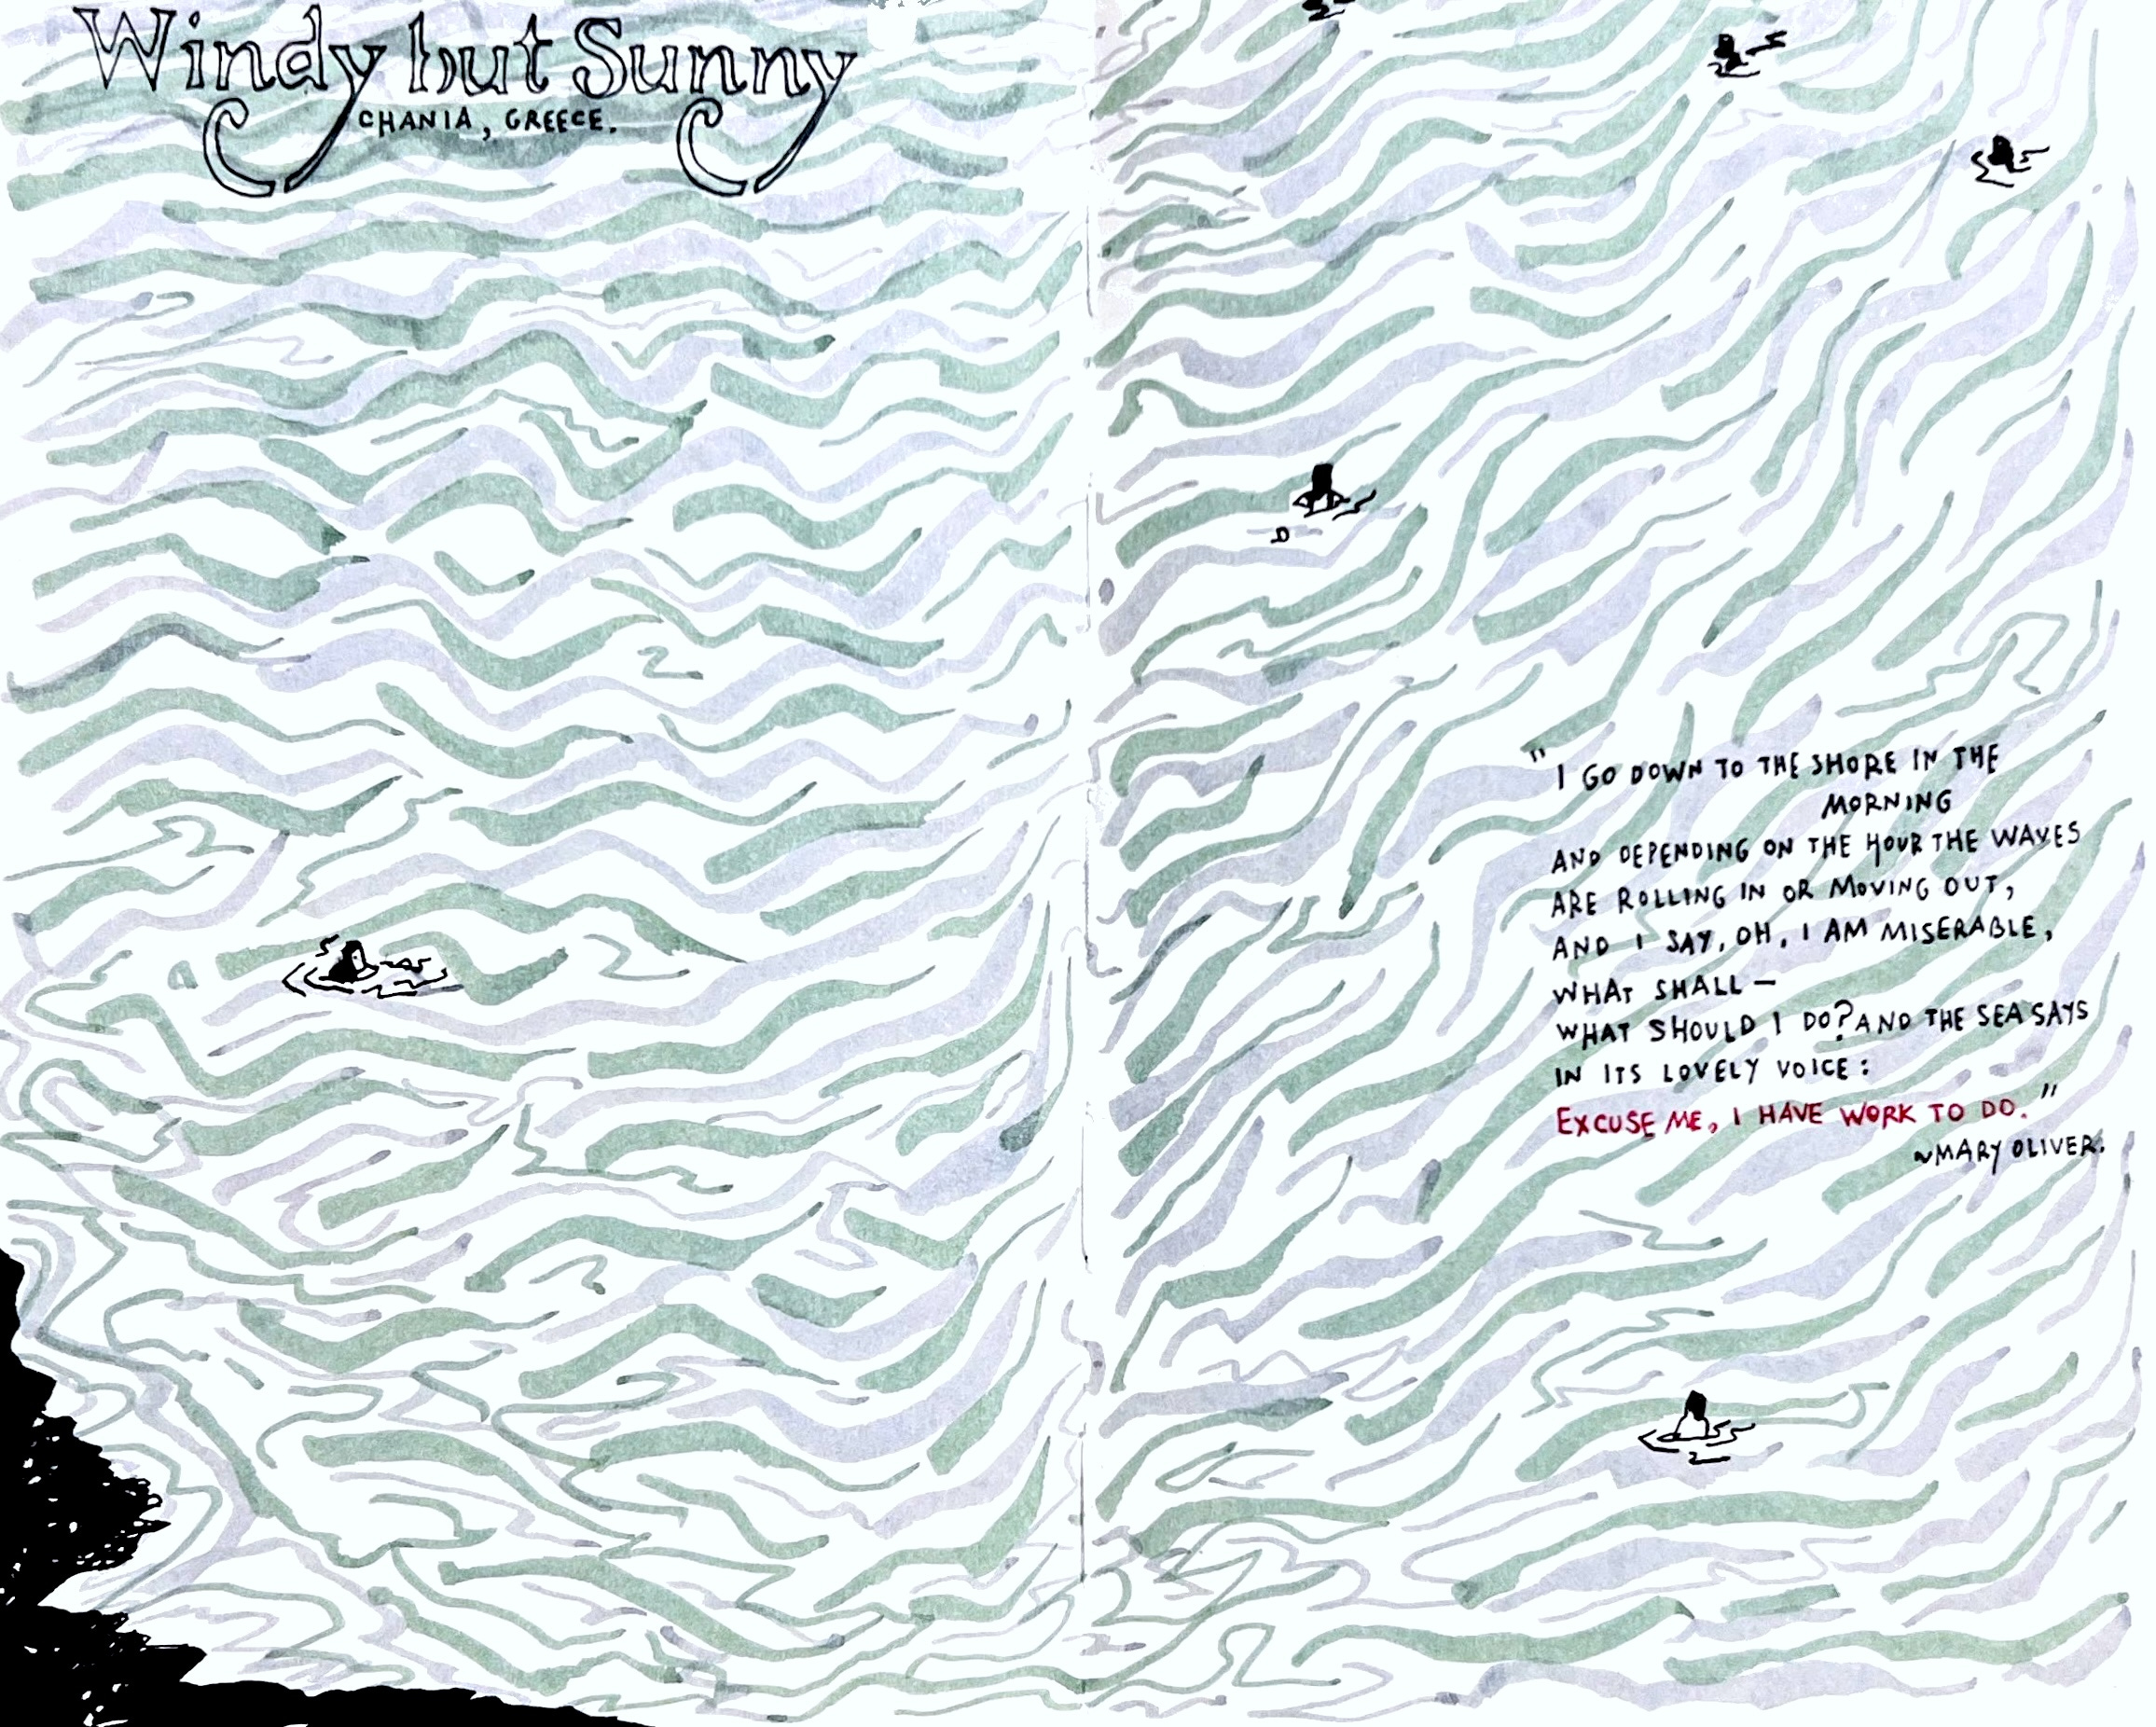 Windy but Sunny
CHANIA, GREECE.
"I GO DOWN TO THE SHORE IN THE
MORNING
AND DEPENDING ON THE HOUR THE WAVES
ARE ROLLING IN OR MOVING OUT,
AND I SAY, OH, I AM MISERABLE,
WHAT SHALL —
WHAT SHOULD I DO? AND THE SEA SAYS
IN ITS LOVELY VOICE:
EXCUSE ME, I HAVE WORK TO DO."
~MARY OLIVER.